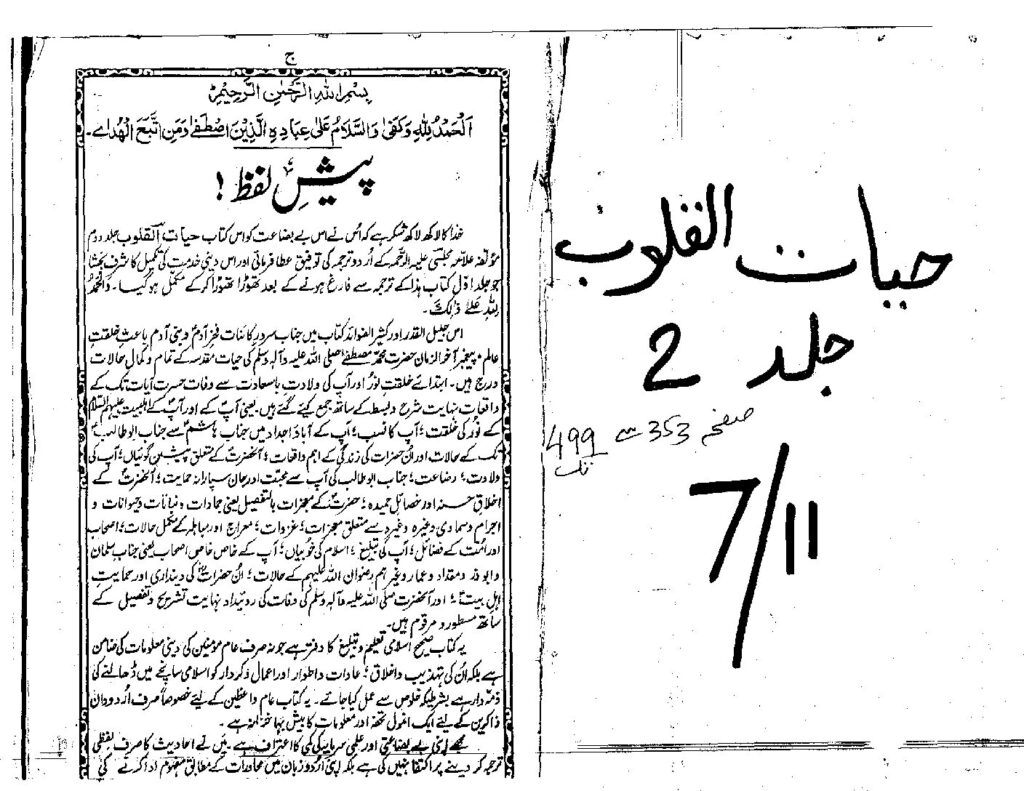 حیات القلوب
جلد 2
صفحہ 353 سے 499
تک
7/11
ج
بِسْمِ اللهِ الرَّحْمٰنِ الرَّحِيْمِ
اَلْحَمْدُ لِلّٰهِ وَكَفٰى وَالسَّلَامُ عَلٰى عِبَادِهِ الَّذِيْنَ اصْطَفٰے وَمَنِ اتَّبَعَ الْهُدٰے۔
پیشِ لفظ!
خدا کا لاکھ لاکھ شکر ہے کہ اُس نے اس بے بضاعت کو اس کتاب حیات القلوب جلد دوم
مؤلفہ علامہ مجلسی علیہ الرحمہ کے اُردو ترجمہ کی توفیق عطا فرمائی اور اس دینی خدمت کی تکمیل کا شرف بخشا
جو جلد اوّل کتاب ہذا کے ترجمہ سے فارغ ہونے کے بعد تھوڑا تھوڑا کر کے مکمل ہو گیا۔ وَالْحَمْدُ
لِلّٰهِ عَلٰے ذٰلِكَ۔
اس جلیل القدر اور کثیر الفوائد کتاب میں جناب سرور کائنات فخر آدمؑ و بنی آدم باعث خلقت
عالم، پیغمبر آخر الزمان حضرت محمد مصطفےٰ صلی اللہ علیہ وآلہ وسلم کی حیات مقدسہ کے تمام و کمال حالات
درج ہیں۔ ابتدائے خلقت نُور اور آپ کی ولادت باسعادت سے وفات حسرت آیات تک کے
واقعات نہایت شرح و بسط کے ساتھ جمع کیئے گئے ہیں۔ یعنی آپؐ کے اور آپؐ کے اہلبیت علیہم السلام
کے نُور کی خلقت؛ آپؐ کا نسب؛ آپ کے آباؤ اجداد میں جناب ہاشمؑ سے جناب ابوطالبؑ
تک کے حالات اور اُن حضرات کی زندگی کے اہم واقعات؛ آنحضرتؐ کے متعلق پیشین گوئیاں؛ آپ کی
ولادت؛ رضاعت؛ جناب ابوطالب کی آپ سے محبّت اور جان سپارانہ حمایت؛ آنحضرتؐ کے
اخلاق حسنہ اور خصائل حمیدہ؛ حضرتؐ کے معجزات بالتفصیل یعنی جمادات و نباتات و حیوانات و
اجرام و سماوی وغیرہ وغیرہ سے متعلق معجزات؛ غزوات؛ معراج اور مباہلہ کے مکمل حالات؛ اصحاب
اور اُمّت کے فضائل؛ آپؐ کی تبلیغ؛ اسلام کی خوبیاں؛ آپ کے خاص خاص اصحاب یعنی جناب سلمان
و ابوذر و مقداد و عمار وغیرہم رضوان اللہ علیہم کے حالات؛ اُن حضرات کی دینداری اور حمایت
اہل بیتؑ؛ اور آنحضرت صلی اللہ علیہ وآلہ وسلم کی وفات کی روئیداد نہایت تشریح و تفصیل کے
ساتھ مسطور و مرقوم ہیں۔
یہ کتاب صحیح اسلامی تعلیم و تبلیغ کا دفتر ہے جو نہ صرف عام مومنین کی دینی معلومات کی ضامن
ہے بلکہ اُن کی تہذیب و اخلاق؛ عادات و اطوار اور اعمال و کردار کو اسلامی سانچے میں ڈھالنے کی
ذمہ دار ہے بشرطیکہ خلوص سے عمل کیا جائے۔ یہ کتاب عام واعظین کے لیئے خصوصاً صرف اُردو دان
ذاکرین کے لیئے ایک انمول تحفہ اور معلومات کا بیش بہا خزانہ ہے۔
مجھے اپنی بے بضاعتی اور علمی سرمایہ کی کمی کا اعتراف ہے۔ میں نے احادیث کا صرف لفظی
ترجمہ کر دینے پر اکتفا نہیں کی ہے بلکہ اپنی اُردو زبان میں محاورات کے مطابق مفہوم ادا کرنے کی